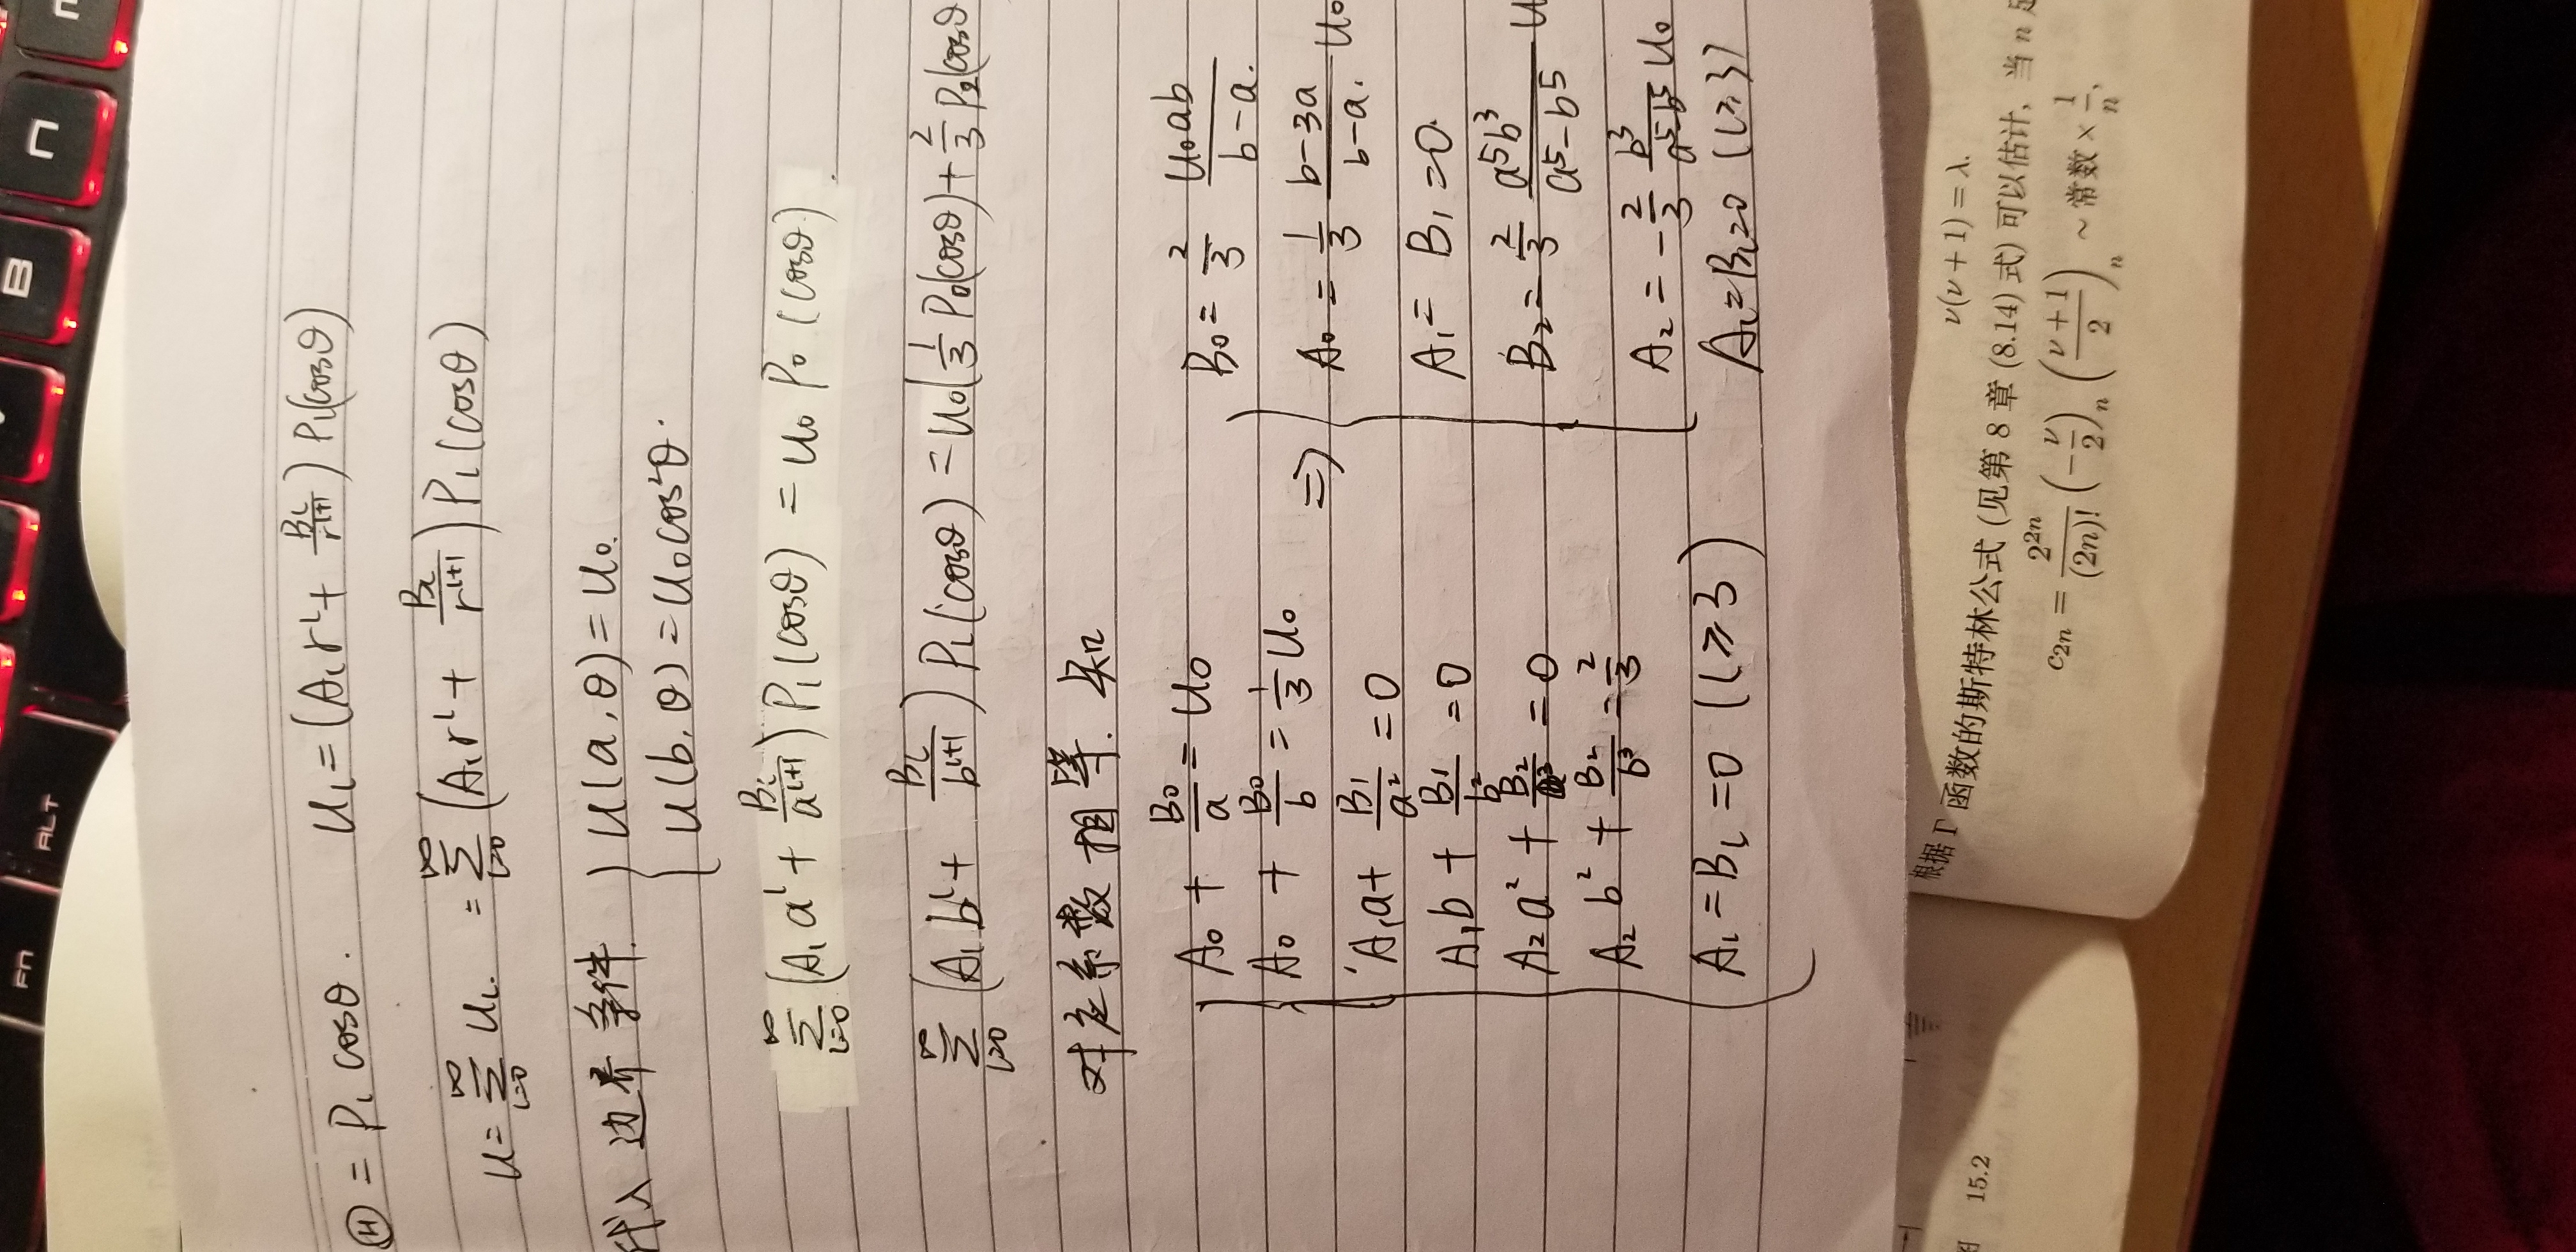 FN
ALT
B
n
Ⓗ = P_l cosθ. u_l = (A_l r^l + B_l/r^{l+1}) P_l(cosθ)
u = ∑_{l=0}^∞ u_l. = ∑_{l=0}^∞ (A_l r^l + B_l/r^{l+1}) P_l(cosθ)
代入 边界条件. { u(a,θ) = u_0.
u(b,θ) = u_0 cos²θ.
∑_{l=0}^∞ (A_l a^l + B_l/a^{l+1}) P_l(cosθ) = u_0 P_0 (cosθ).
∑_{l=0}^∞ (A_l b^l + B_l/b^{l+1}) P_l(cosθ) = u_0(1/3 P_0(cosθ) + 2/3 P_2(cosθ
对应系数相等. 知
A_0 + B_0/a = u_0
A_0 + B_0/b = 1/3 u_0
A_1 a + B_1/a² = 0
A_1 b + B_1/b² = 0
A_2 a² + B_2/a³ = 0
A_2 b² + B_2/b³ = 2/3
A_l = B_l = 0 (l ≥ 3)
⇒
B_0 = 2/3 u_0ab/(b-a).
A_0 = 1/3 (b-3a)/(b-a). u_0
A_1 = B_1 = 0.
B_2 = 2/3 a⁵b³/(a⁵-b⁵) u
A_2 = -2/3 b³/(a⁵-b⁵) u_0
A_l = B_l = 0 (l ≥ 3)
图 15.2
ν(ν + 1) = λ.
根据 Γ 函数的斯特林公式 (见第 8 章 (8.14) 式) 可以估计, 当 n 足
c_{2n} = 2^{2n}/(2n)! (-ν/2)_n ((ν+1)/2)_n ~ 常数 × 1/n,